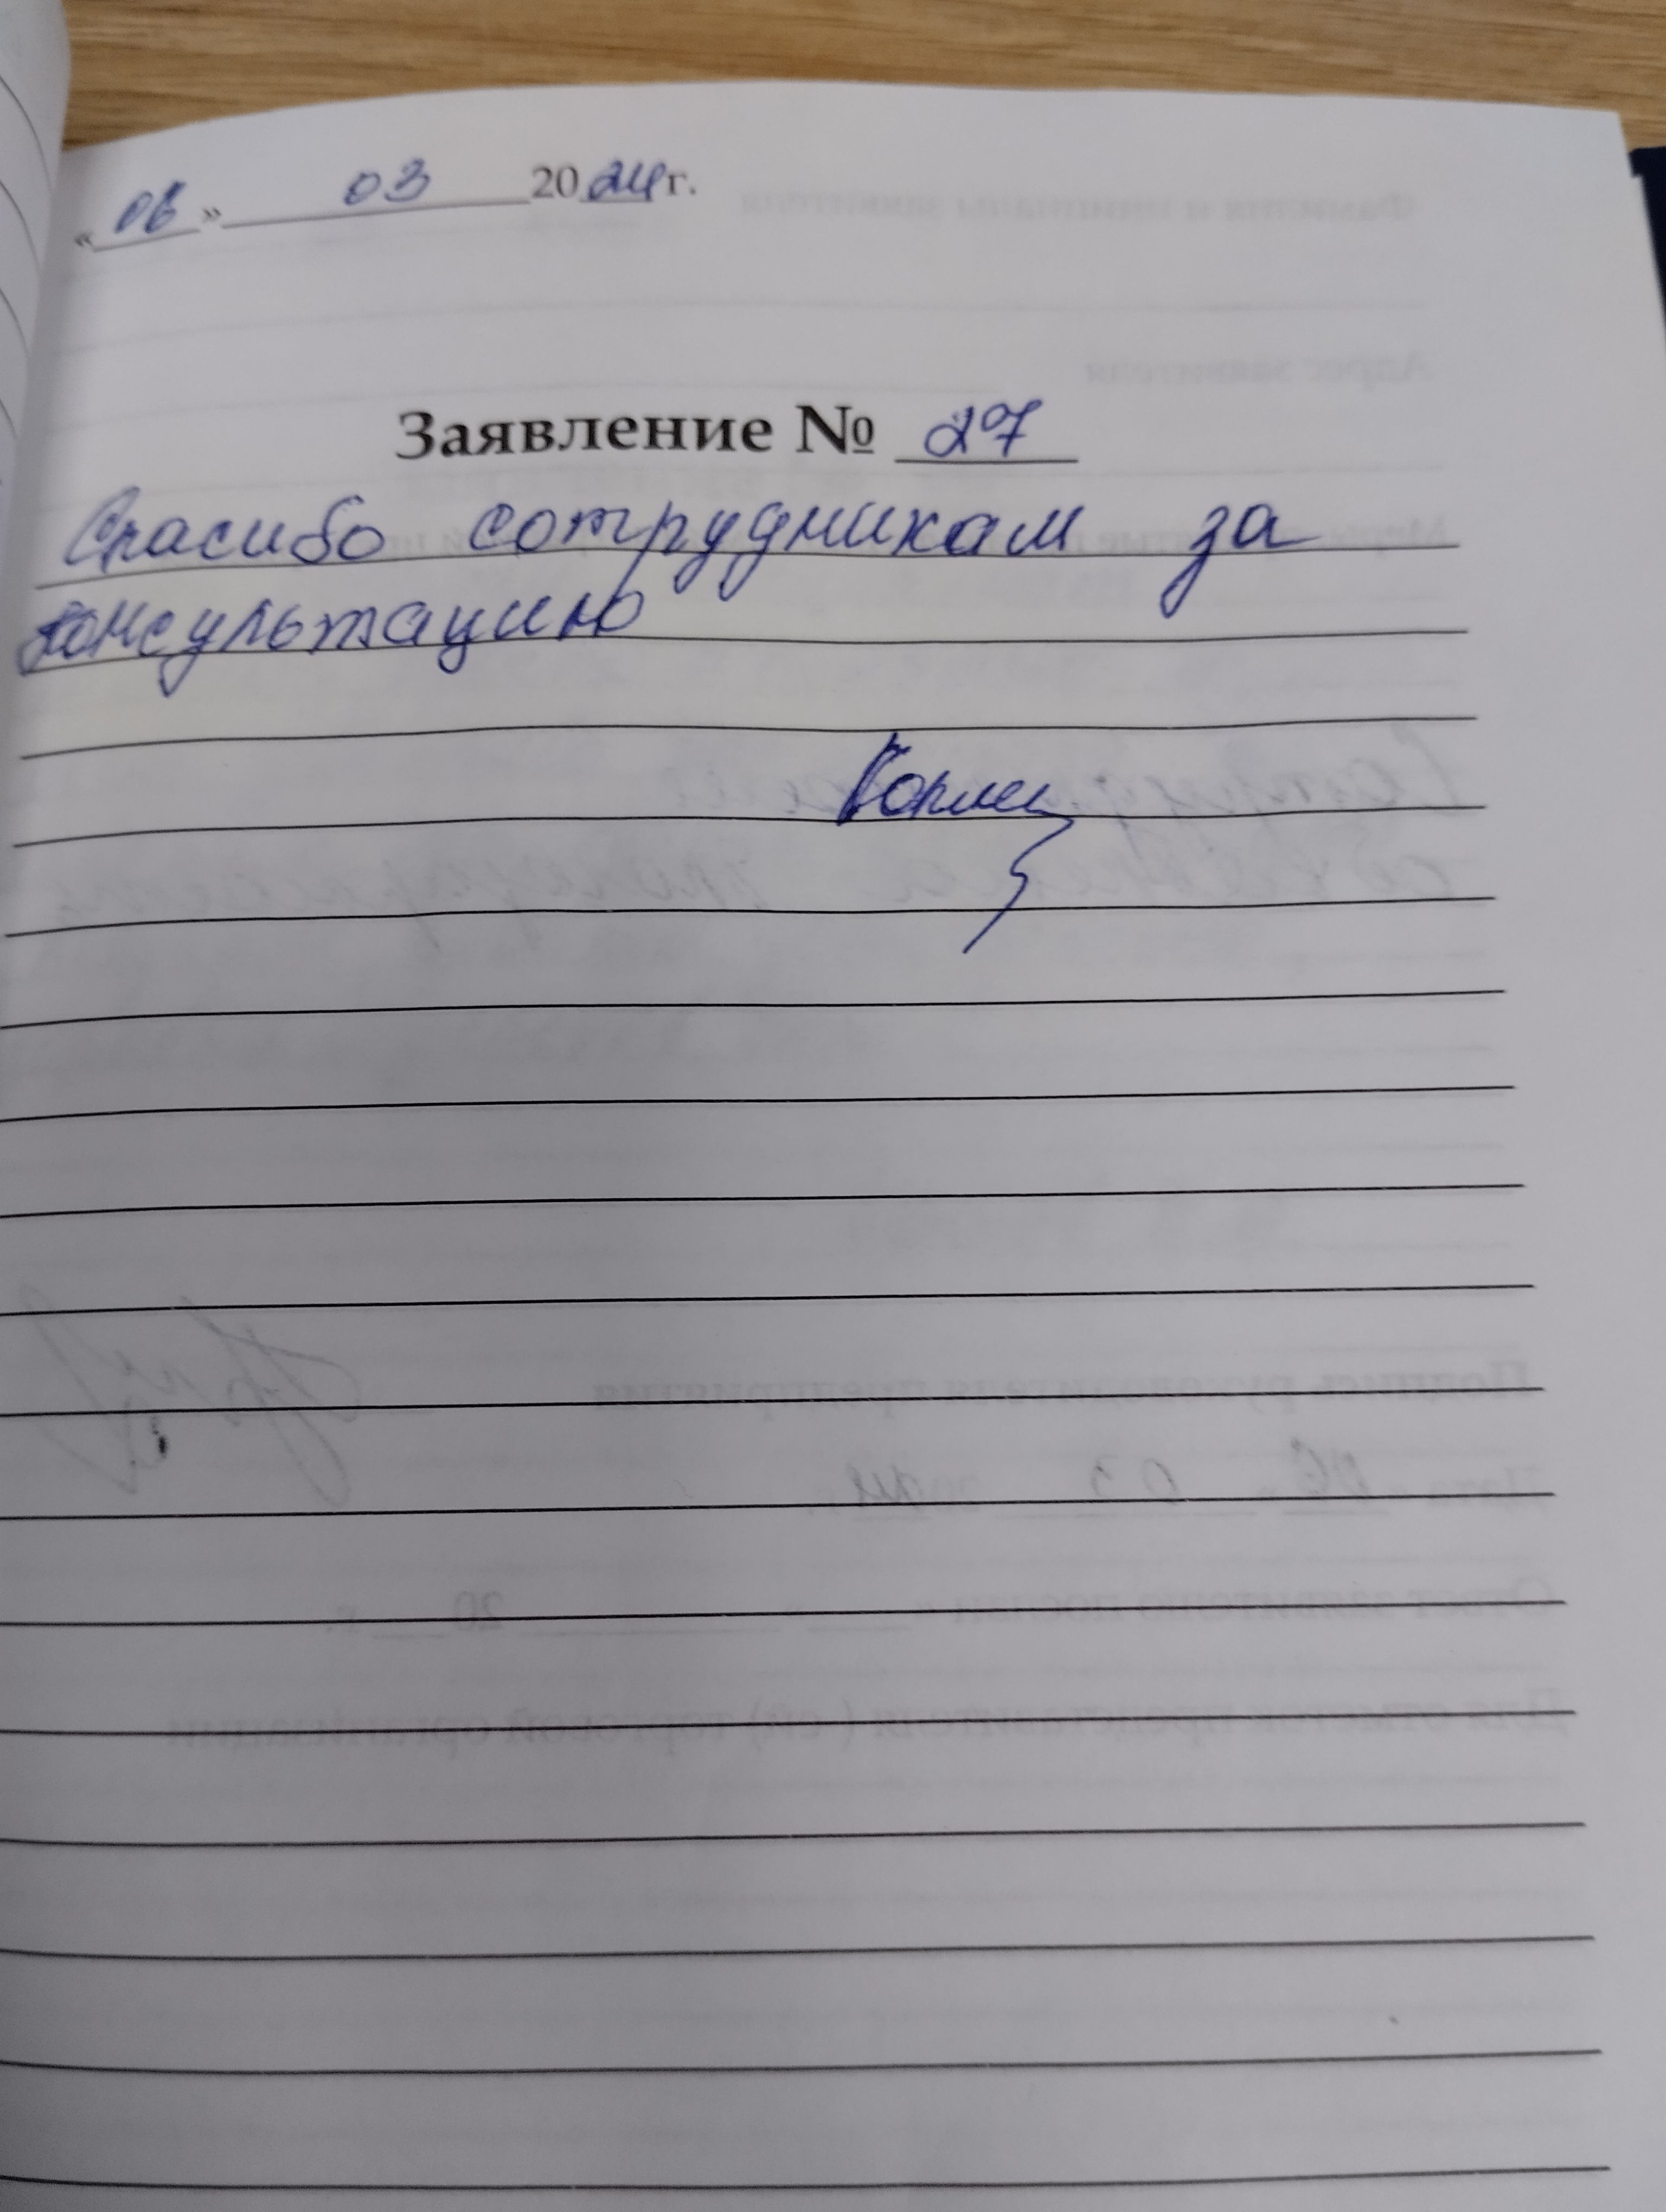 «06» 03 2024 г.
Заявление № 27
Спасибо сотрудникам за
консультацию